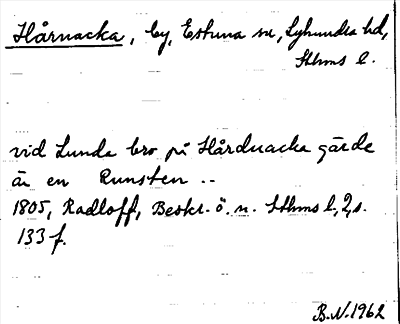 Hårnacka, by, Estuna sn, Lyhundra hd,
Sthms l.
vid Lunda bro på Hårdnacka gärde
är en Runsten ..
1805, Radloff, Beskr. ö. n. Sthms l, 2, s.
133 f.
B.N. 1962